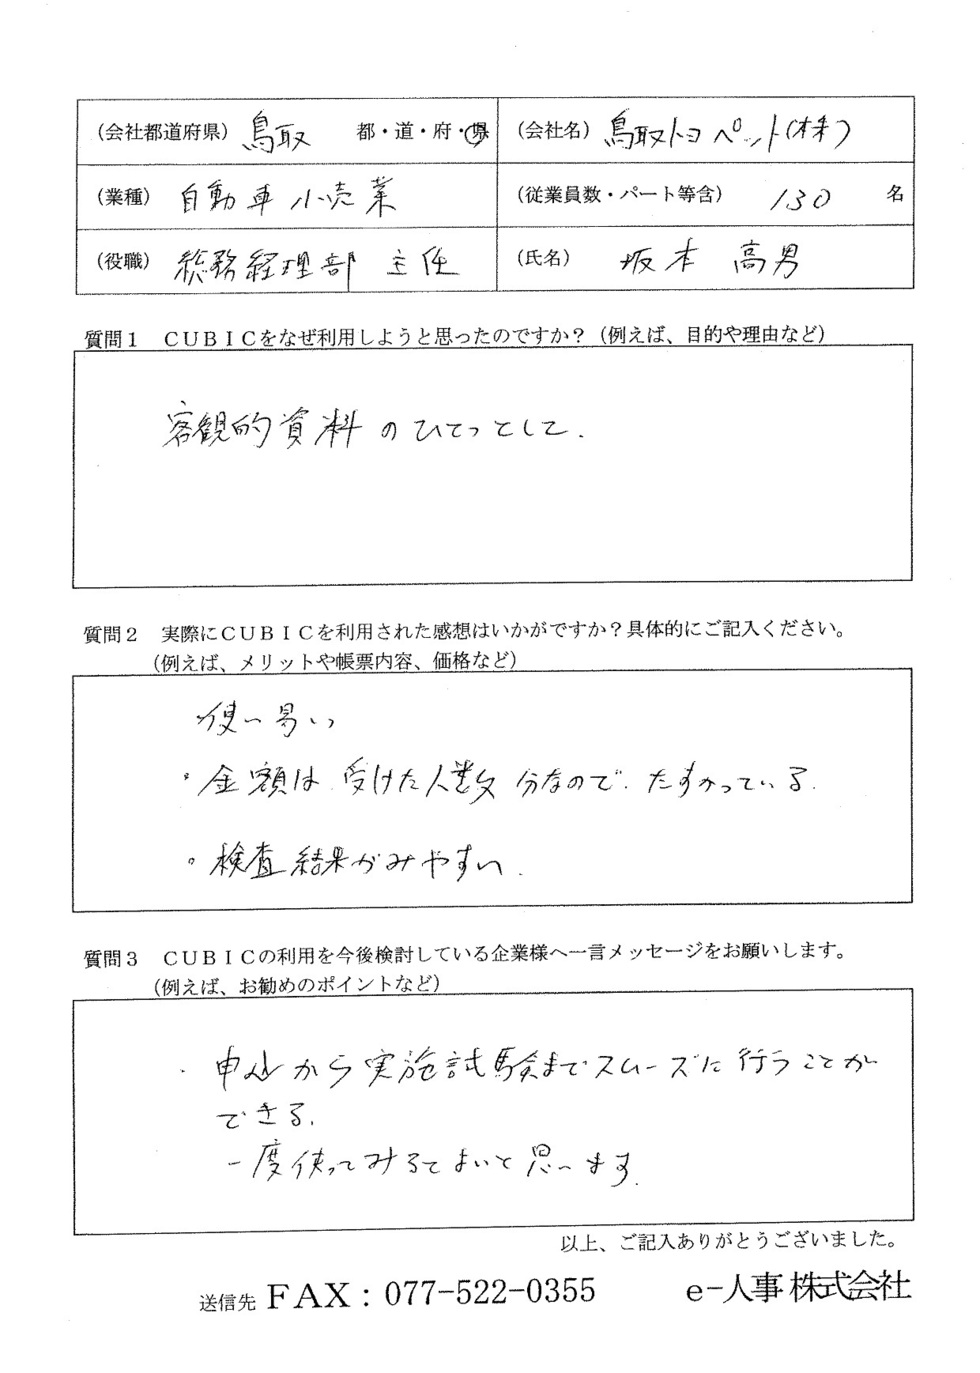 (会社都道府県) 鳥取 都・道・府・県 (会社名) 鳥取トヨペット(株)
(業種) 自動車小売業 (従業員数・パート等含) 130 名
(役職) 総務経理部 主任 (氏名) 坂本 高男
質問1 CUBICをなぜ利用しようと思ったのですか?(例えば、目的や理由など)
客観的資料のひとつとして.
質問2 実際にCUBICを利用された感想はいかがですか?具体的にご記入ください。
(例えば、メリットや帳票内容、価格など)
使い易い
・金額は受けた人数分なので、たすかっている.
・検査結果がみやすい.
質問3 CUBICの利用を今後検討している企業様へ一言メッセージをお願いします。
(例えば、お勧めのポイントなど)
・申込から実施試験までスムーズに行うことが
できる.
一度使ってみるてよいと思います.
以上、ご記入ありがとうございました。
送信先 FAX:077-522-0355 e-人事株式会社